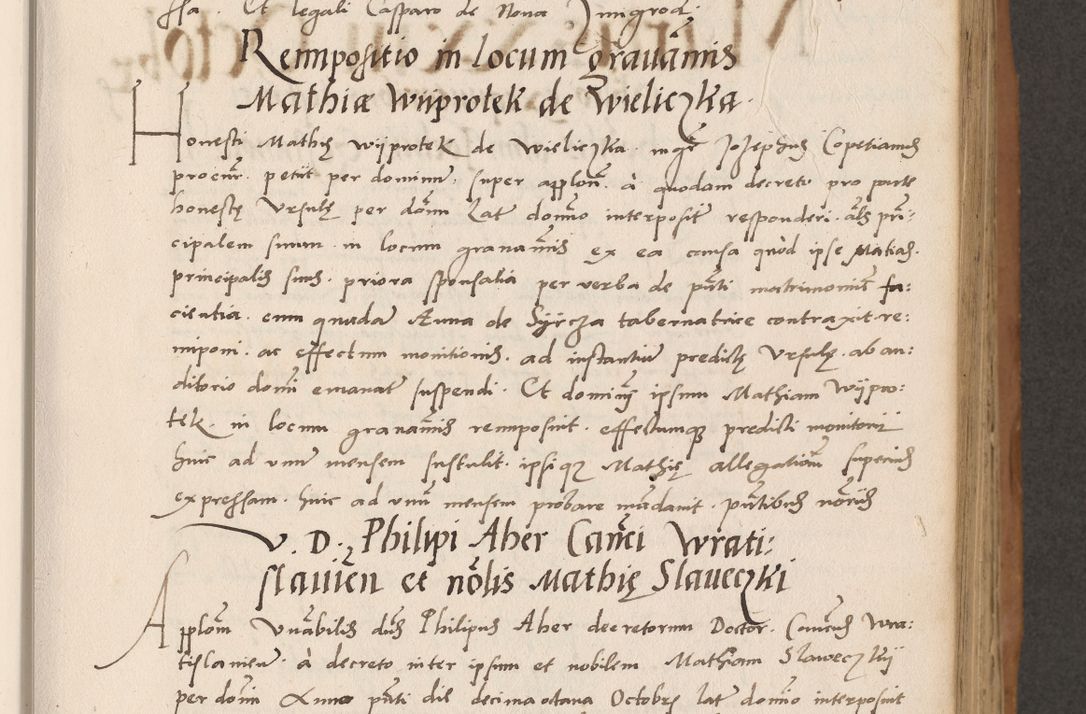 ssa. Et legali Casparo de Nona Jungrod.
Reimpositio in locum grauaminis
Mathiæ Wÿprotek de Wieliczka.
Honesti Mathię Wÿprotek de Wieliczka. mgr Josephus Copetianus
procur. petiit per dominum. super applon. à quodam decreto pro parte
honestę Vrsulę per dom̄ Lat domno interposit responderi. als prin:
cipalem suum in locum grauaminis ex ea causa quòd ipse Matias.
principalis suus. priora sponsalia per verba de pn̄ti matrimonium fa:
cientia. cum quadam Anna de Sÿrcza tabernatrice contraxit. re:
imponi. ac effectum monitionis. ad instantiam predictę Vrsulę. ab au:
ditorio domi emanat suspendi. Et dominus ipsum Mathiam Wÿpro:
tek. in locum grauaminis reimposuit. effectumque predicti monitorii
huic ad vnum mensem sustulit. ipsique Mathię allegationem superius
expressam. huic ad vnum mensem probare mandauit. pn̄tibus notariis
V. D. Philipi Aber Canci Wrati:
slauien et nolis Mathię Slaueczki
Applom Vnabilis dns Philipus Aber decretorum Doctor. Canicus Wra:
tislauien. à decreto inter ipsum et nobilem Mathiam Slaweczkÿ
per dom̄ Anno pn̄ti die decima octaua Octobris lat domno interposuit